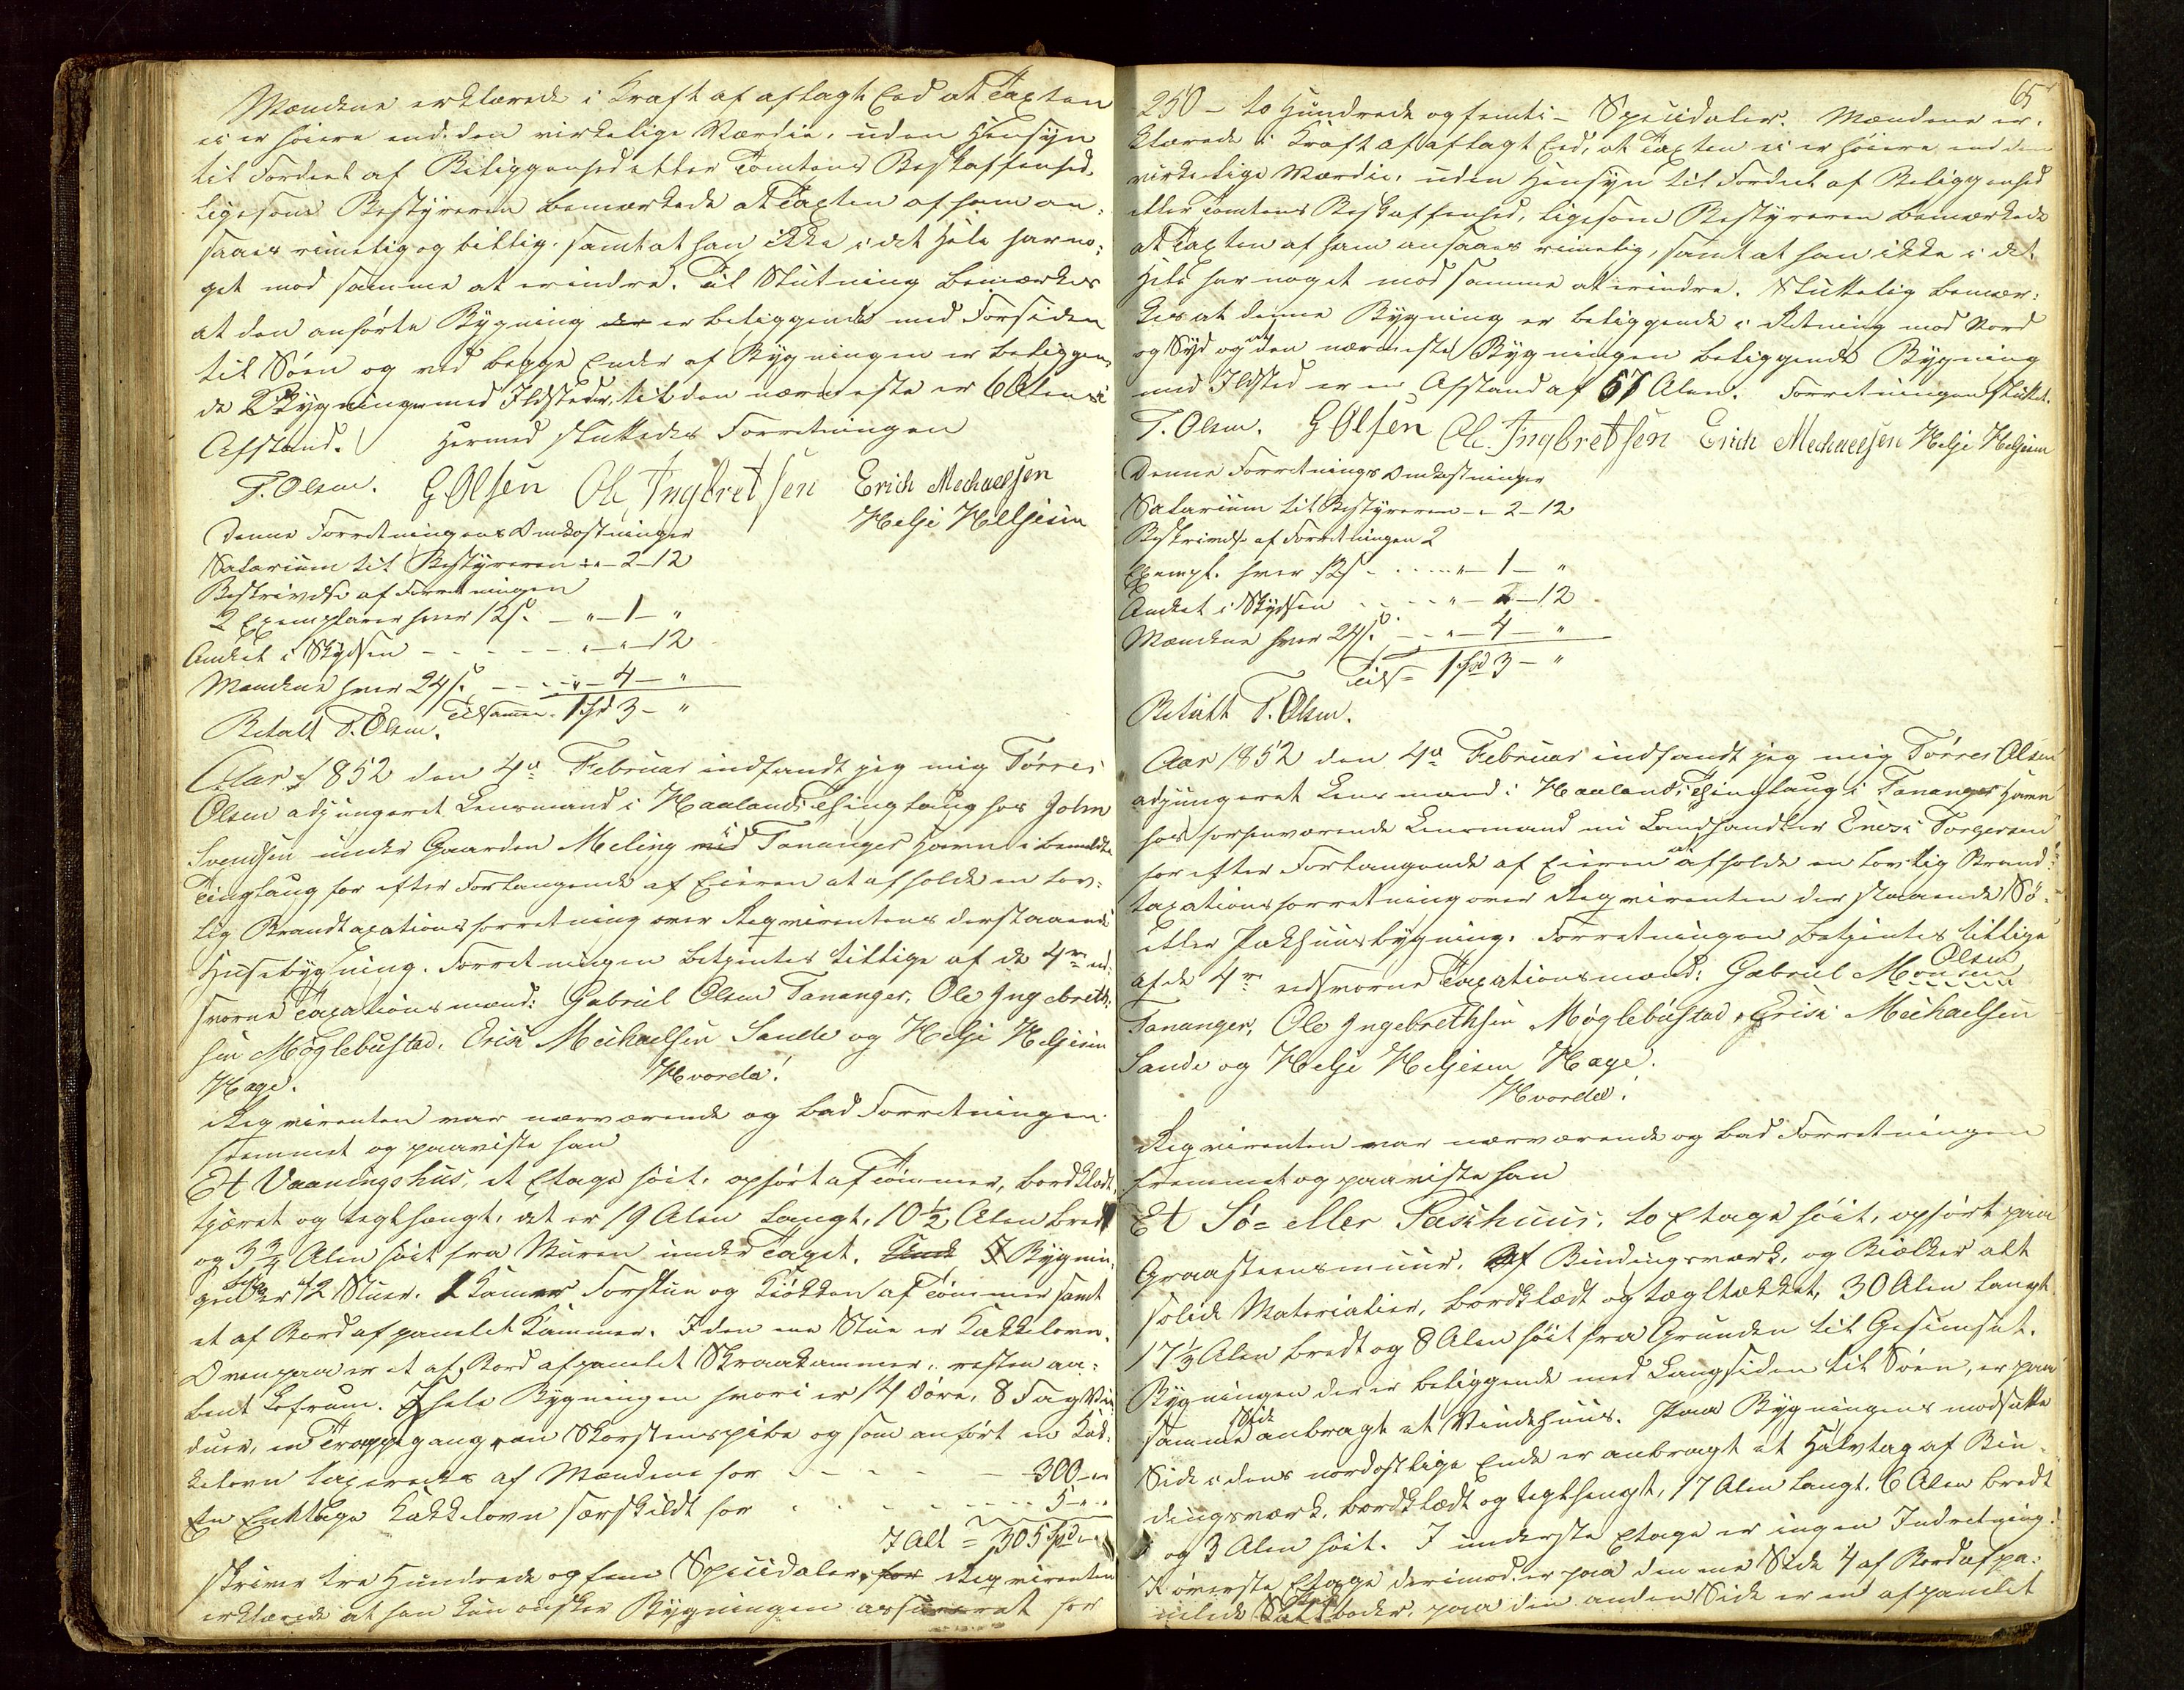 Mændene erklærede i Kraft af aflagt Eed at Taxten
ei er høiere end den virkelige Værdie, uden Hensyn
til Fordeel af Beliggenhed eller Tomtens Beskaffenhed.
ligesom Bestyreren bemærkede at Taxten af ham an-
saaes rimelig og billig, samt at han ikke i det Hele har no-
get mod samme at erindre. Til Slutning bemærkes
at den anførte Bygning er beliggende med Forsiden
til Søen og ved begge Ender af Bygningen er beliggen-
de 2 Bygninger med Ildsteder, til den nærmeste er 6 Alens
Afstand. Hermed sluttedes Forretningen
T. Olsen. G Olsen Ole Ingbretsen Erich Mechaelsen
Helje Helljesen
Denne Forretningens Omkostninger
Salarium til Bestyreren - " - 2 - 12
Beskrivelse af Forretningen
2 Exemplarer hver 12 s. - " - 1 - "
Andeel i Skydsen - - - - - " - " - 12
Mændene hver 24 s. - - - " - 4 - "
Tilsammen 1 Spd 3 - "
Betalt T. Olsen.
Aar 1852 den 4de Februar indfandt jeg mig Tørres
Olsen adjungeret Lensmand i Haalands Thinglaug hos John
Svendsen under Gaarden Meling i Tananger Havn i bemeldte
Tinglaug for efter Forlangende af Eieren at afholde en lov-
lig Brandtaxationsforretning over Reqvirentens derstaaende
Husebygning. Forretningen betjentes tillige af de 4re ed-
svorne Taxationsmænd: Gabriel Olsen Tananger, Ole Ingebreth-
sen Møglebustad, Erisk Meikaelsen Sande og Helje Heljesen
Hage. Hvorda!
Reqvirenten var nærværende og bad Forretningen
fremmet og paaviste han
Et Vaaningshus, et Etage høit, opført af Tømmer, bordklædt,
tjæret og teglhængt, det er 19 Alen langt, 10 1/2 Alen bredt
og 3 3/4 Alen høit fra Muren under Taget. I Bygnin-
gen er 2 Stuer. 1 Kammer Forstue og Kiøkken af Tømmer samt
et af Bord afpanelet Kammer. I den ene Stue er Kakkelovn.
Ovenpaa er et af Bord afpanelet Skraakammer, resten aa-
bent Lofrum. Ihele Bygningen hvori er 14 Døre, 8 Fag Vin-
duer, en Trappegang, en Skorstenspibe og som anført en Kak-
kelovn taxeredes af Mændene for - - - - - 300 - "
En Enetages Kakkelovn særskildt for - - - - - 5 - " -
I Alt = 305 Spd
skriver tre Hundrede og fem Speciedaler, Reqvirenten
erklærede at han kun ønsker Bygningen assureret for
65
250 - to Hundrede og femti - Speciedaler. Mændene er-
klærede i Kraft af aflagt Eed, at Taxten ei er høiere end den
virkelige Værdie, uden Hensyn til Fordeel af Beliggenhed
eller Tomtens Beskaffenhed, ligesom Bestyreren bemærkede
at Taxten af ham ansaaes rimelig, samt at han ikke i det
Hele har noget mod samme at erindre. Sluttelig bemær-
kes at denne Bygning er beliggende i Retning mod Nord
og Syd og at den nærmeste Bygningen beliggende Bygning
med Ildsted er en Afstand af 67 Alen. Forretningen sluttet.
T. Olsen. G Olsen Ole Ingbretsen Erich Mechaelsen Helje Heljesen
Denne Forretnings Omkostninger
Salarium til Bestyreren - " - 2 - 12
Beskrivelse af Forretningen 2
Exempl. hver 12 s - - - - " - 1 - "
Andeel i Skydsen - - - - " - - 12
Mændene hver 24 s. - - " - 4 - "
Tils = 1 Spd 3 - "
Betalt T. Olsen.
Aar 1852 den 4de Februar indfandt jeg mig Tørres Olsen
adjungeret Lensmand i Haalands Thinglaug i Tananger Havn
hos forhenværende Lensmand nu Landhandler Enok Torgersen
for efter Forlangende af Eieren at afholde en lovlig Brand-
taxationsforretning over Reqvirenten derstaaende Sø-
eller Pakhuusbygning. Forretningen betjentes tillige
af de 4re edsvorne Taxationsmænd: Gabriel Olsen
Tananger, Ole Ingebrethsen Møglebustad, Erisk Meikaelsen
Sande og Helje Heljesen Hage.
Hvorda!
Reqvirenten var nærværende og bad Forretningen
fremmet og paaviste han
Et Sø- eller Pakhuus, to Etage høit, opført paa
Graasteensmuur, af Bindingsværk, og Biælker alt
solide Materialier, bordklædt og tægltækket, 30 Alen langt
17 1/3 Alen bredt og 8 Alen høit fra Grunden til Gesimset.
Bygningen der er beliggende med Langsiden til Søen, er paa
samme Side anbragt et Vindehuus. Paa Bygningens modsatte
Side i dens nordøstlige Ende er anbragt et Halvtag af Bin-
dingsværk, bordklædt og teglhængt, 17 Alen langt, 6 Alen bredt
og 3 Alen høit. I underste Etage er ingen Indretning.
I øverste Etage derimod er paa den ene Side 4 af Bord afpa-
nelede boder, paa den anden Side er en afpanelet